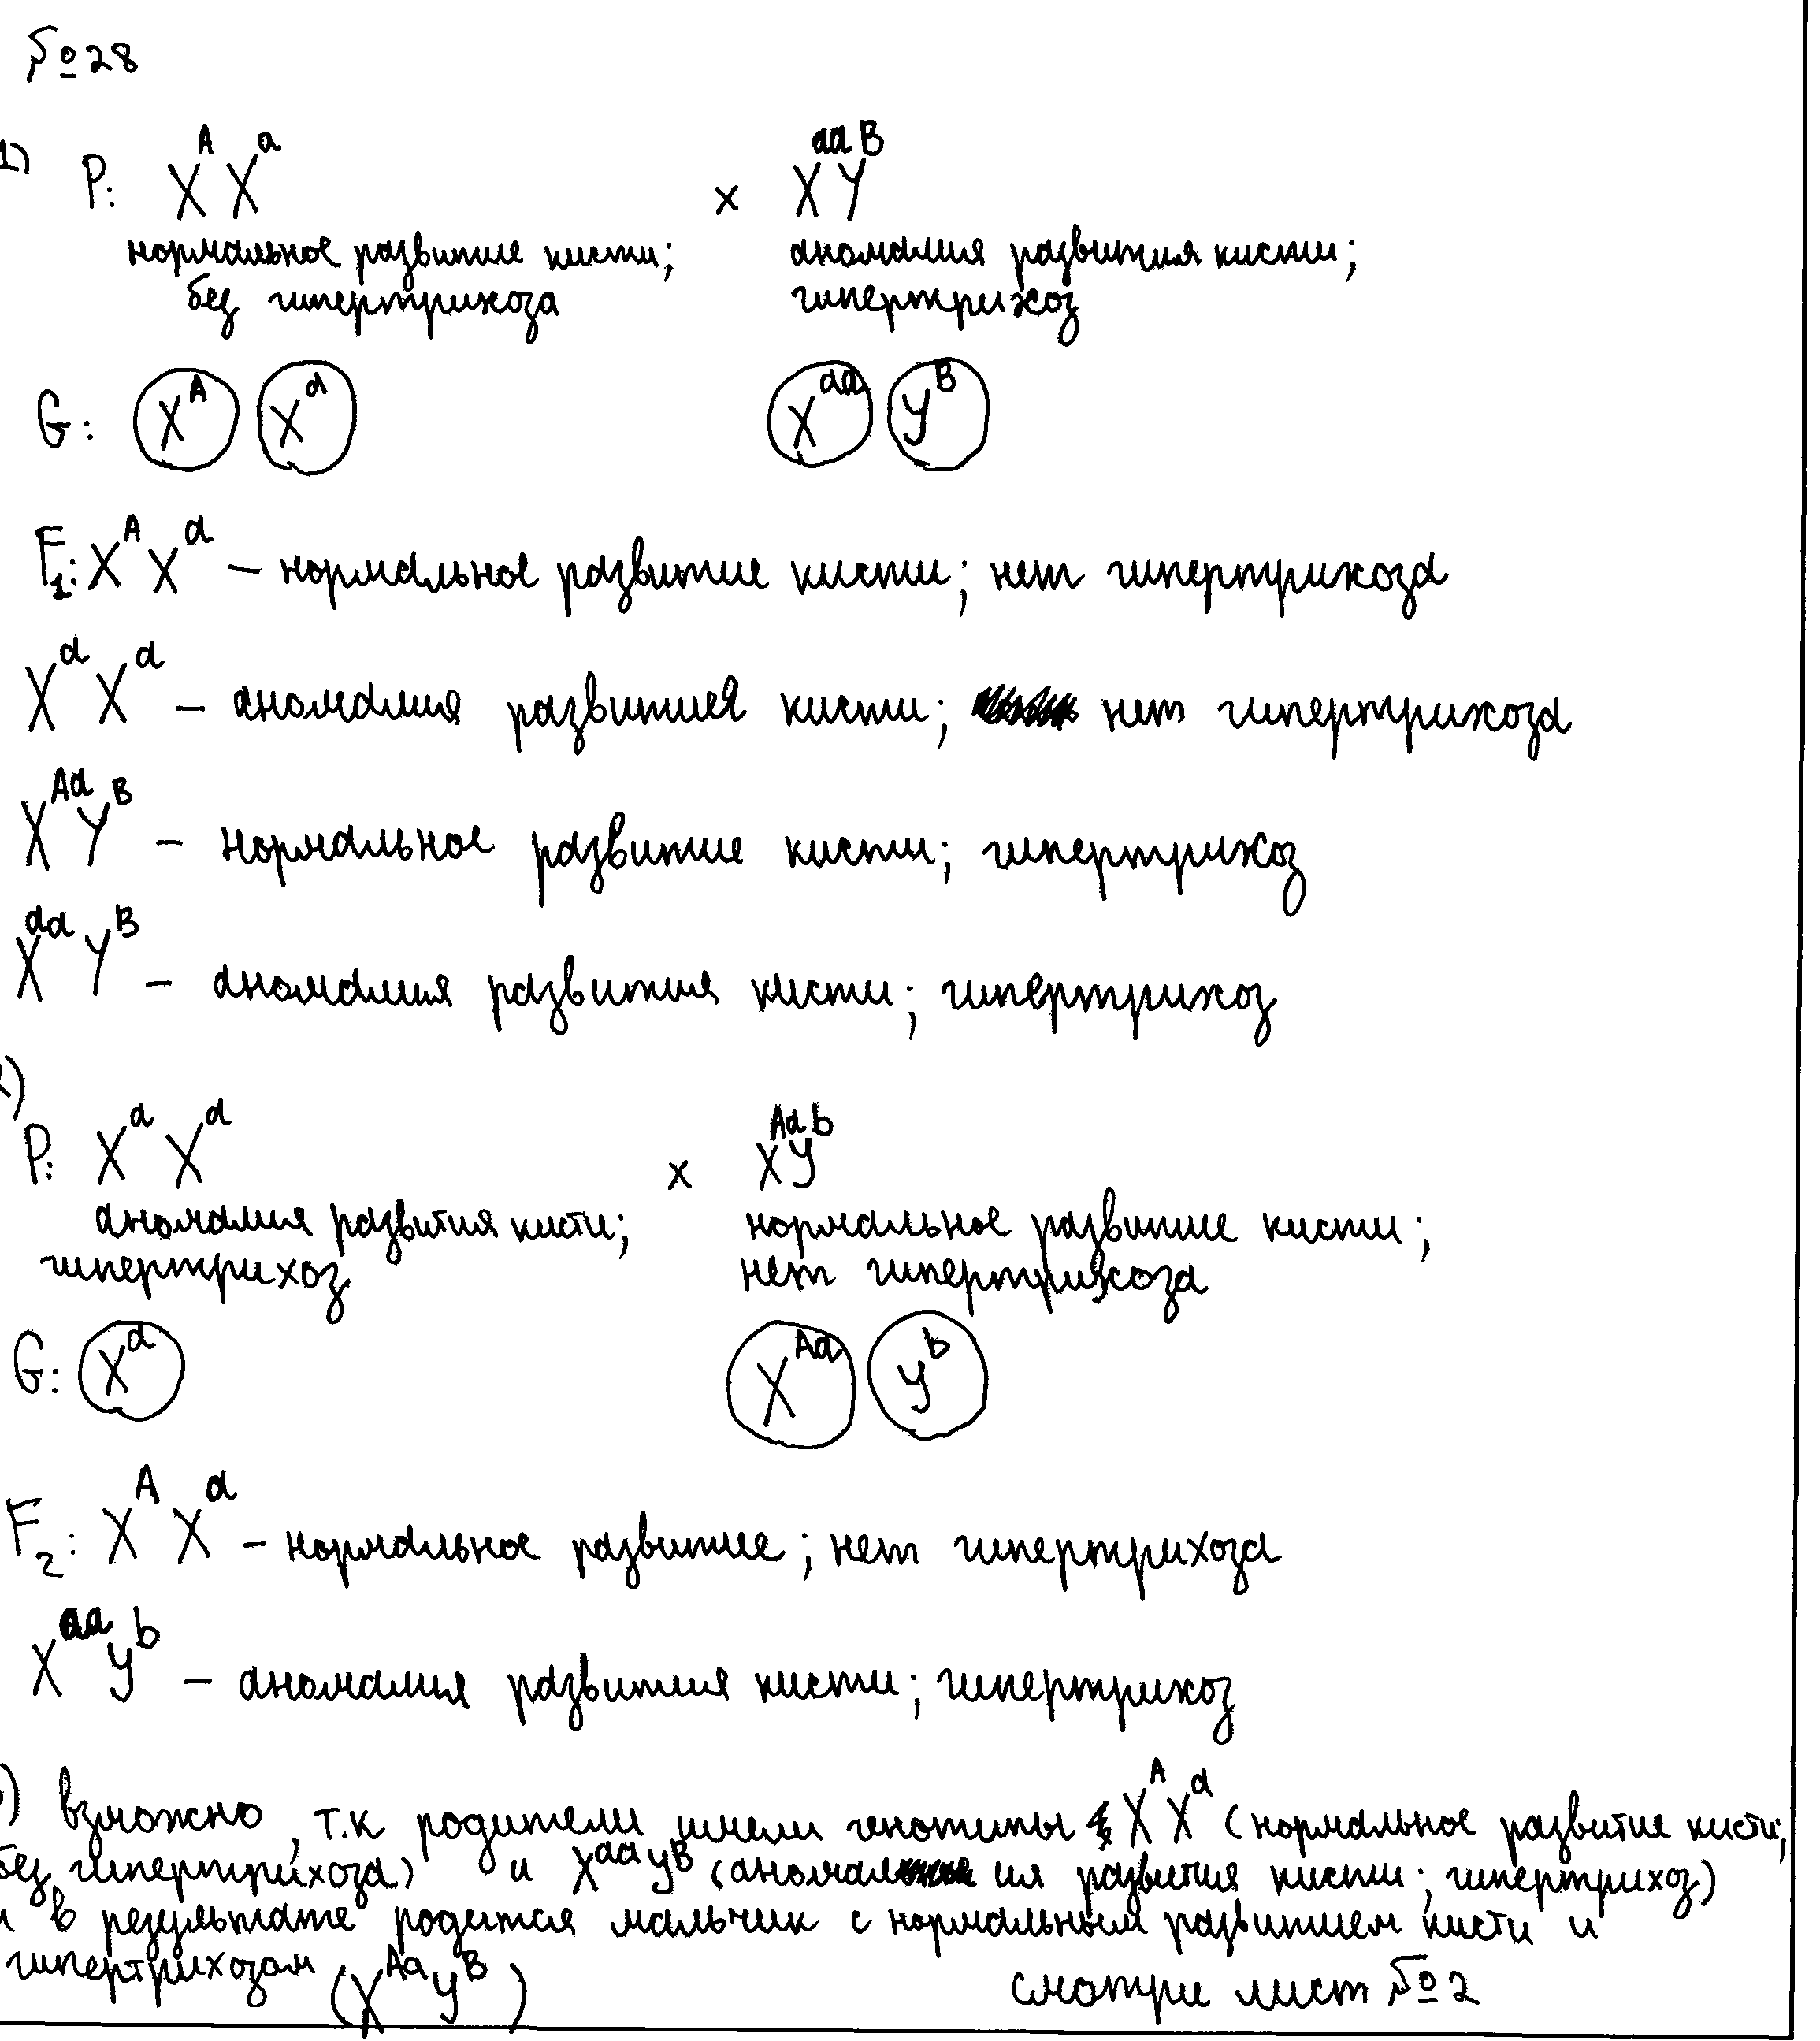 №28
1) P: X^A X^a x X^aa Y^B
нормальное развитие кисти; аномалия развития кисти;
без гипертрихоза гипертрихоз
G: X^A X^a X^aa Y^B
F1: X^A X^a – нормальное развитие кисти; нет гипертрихоза
X^a X^a – аномалия развития кисти; нет гипертрихоза
X^Aa Y^B – нормальное развитие кисти; гипертрихоз
X^aa Y^B – аномалия развития кисти; гипертрихоз
)
P: X^a X^a x X^Aa Y^b
аномалия развития кисти; нормальное развитие кисти;
гипертрихоз нет гипертрихоза
G: X^a X^Aa Y^b
F2: X^A X^a – нормальное развитие; нет гипертрихоза
X^aa Y^b – аномалия развития кисти; гипертрихоз
) взможно, т.к родители имели генотипы X^A X^a (нормальное развитие кисти;
без гипертрихоза) и X^aa Y^B (аномалия развития кисти; гипертрихоз)
и в результате родится мальчик с нормальным развитием кисти и
гипертрихозом (X^Aa Y^B) смотри лист №2